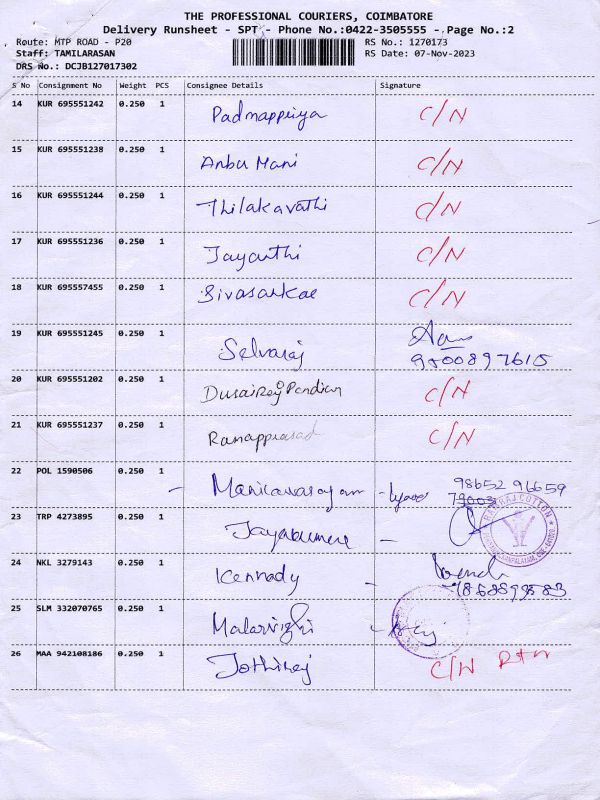 THE PROFESSIONAL COURIERS, COIMBATORE
Delivery Runsheet - SPT - Phone No.:0422-3505555 - Page No.:2
Route: MTP ROAD - P20 RS No.: 1270173
Staff: TAMILARASAN RS Date: 07-Nov-2023
DRS No.: DCJB127017302
S No Consignment No Weight PCS Consignee Details Signature
14 KUR 695551242 0.250 1 Padmappriya C/N
15 KUR 695551238 0.250 1 Anbu Mani C/N
16 KUR 695551244 0.250 1 Thilakavathi C/N
17 KUR 695551236 0.250 1 Jayanthi C/N
18 KUR 695557455 0.250 1 Sivasankar C/N
19 KUR 695551245 0.250 1 Selvaraj
20 KUR 695551202 0.250 1 Durairaj Pandian C/N
21 KUR 695551237 0.250 1 Ramapprasad C/N
22 POL 1590506 0.250 1 98652 96659
23 TRP 4273895 0.250 1 RAMRAJ COTTON
24 NKL 3279143 0.250 1 Kennady
25 SLM 332070765 0.250 1 Malarvizhi
26 MAA 942108186 0.250 1 Jothiraj C/N Rtn